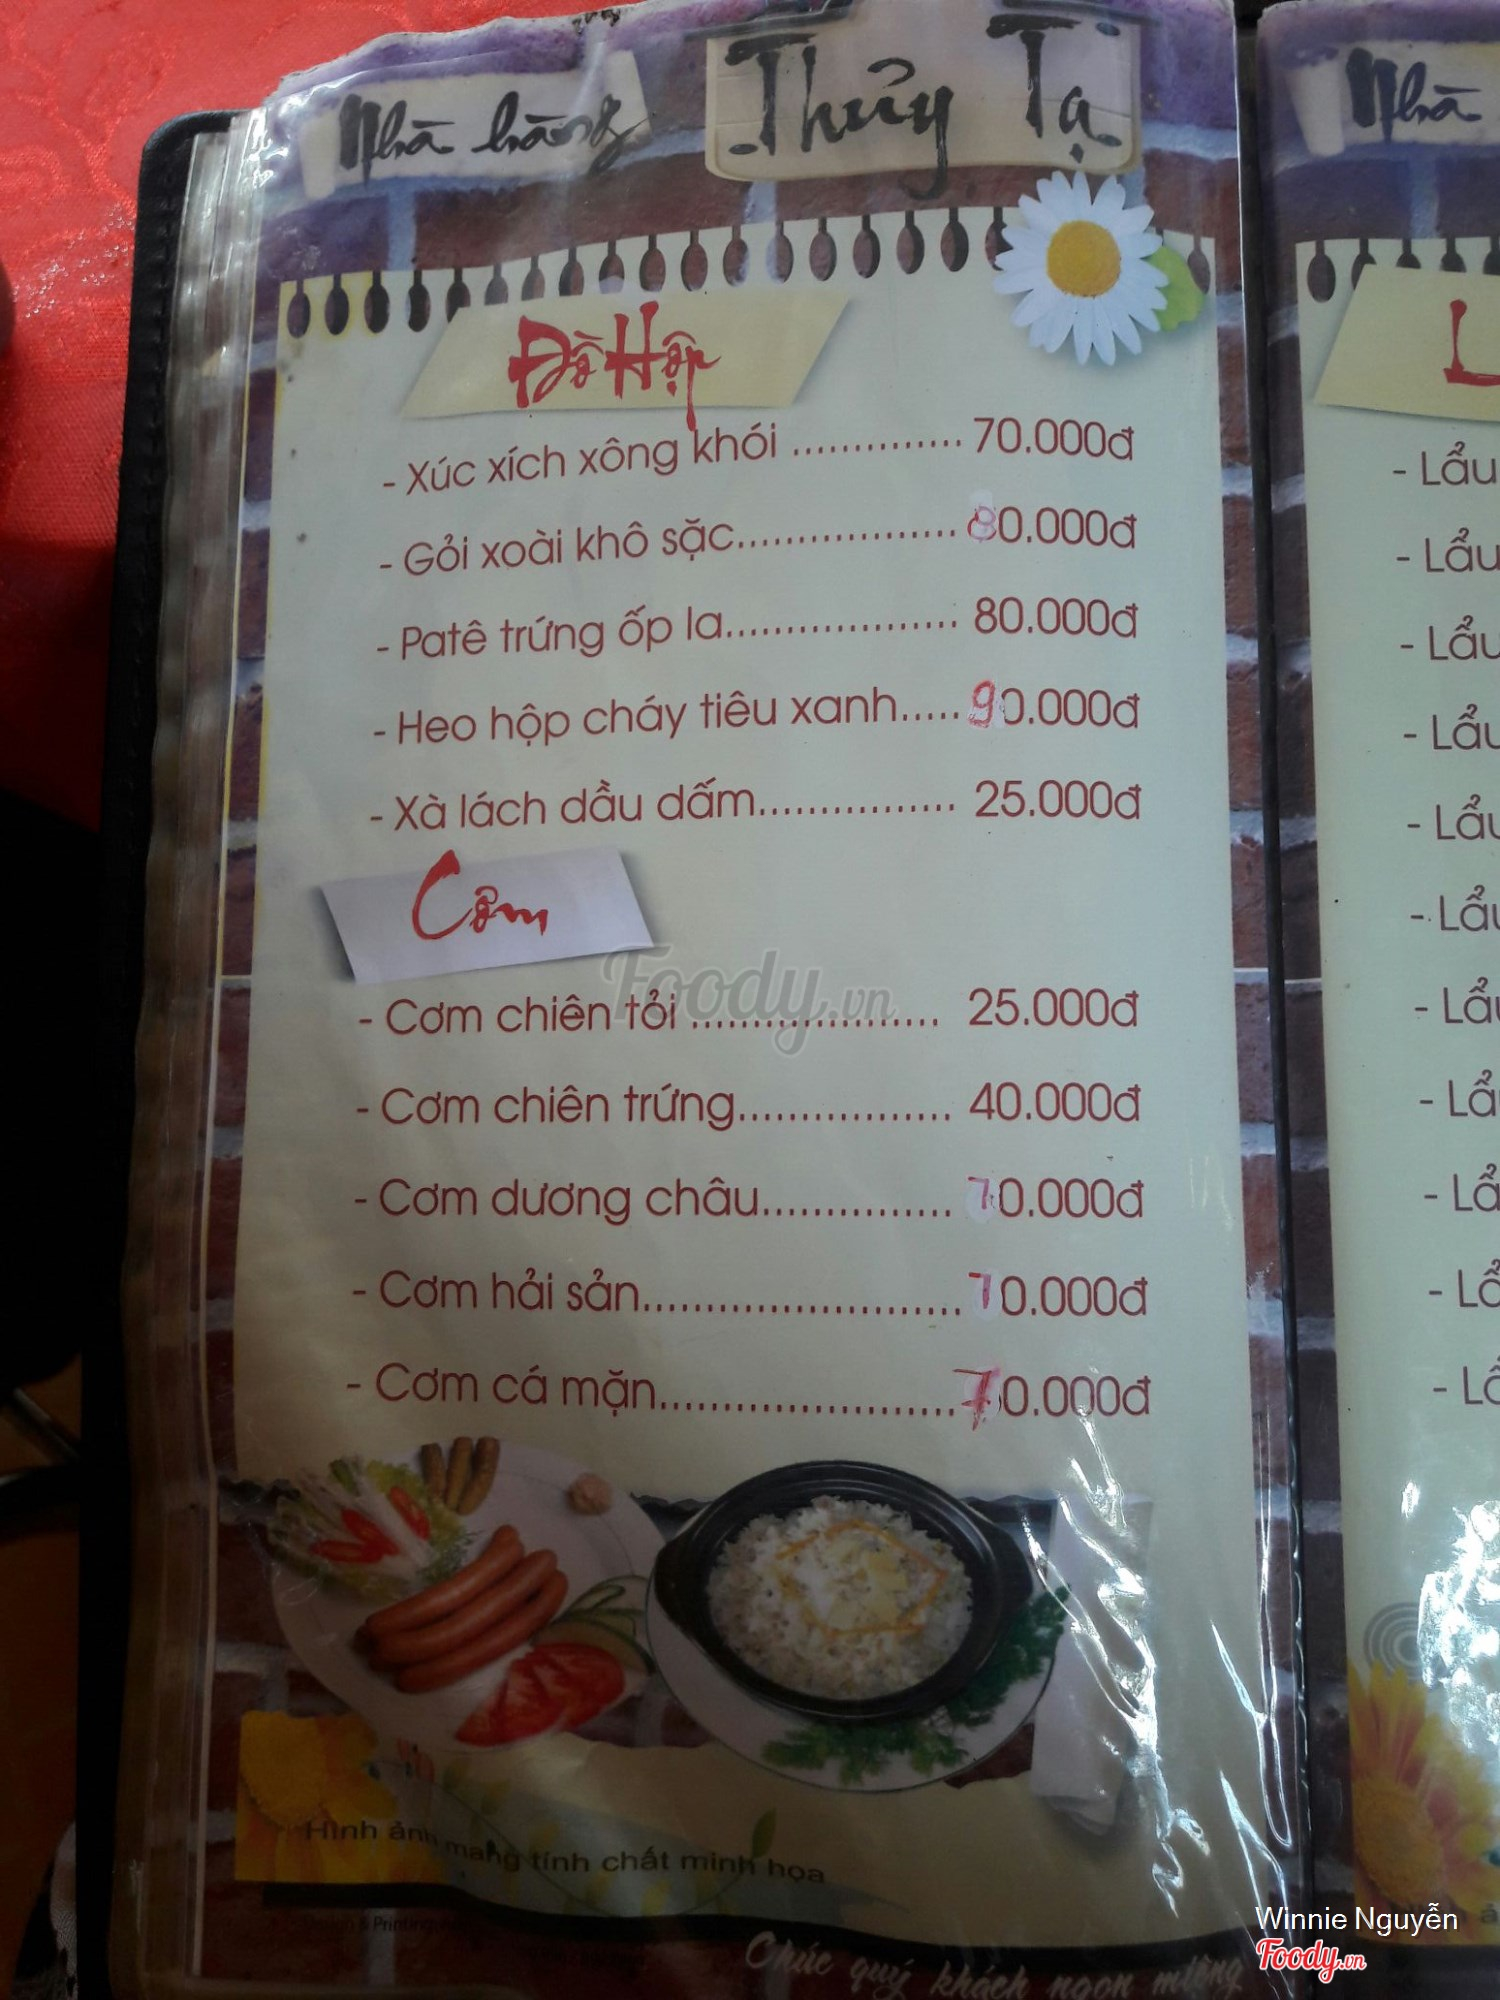 Nhà hàng Thủy Tạ
Đồ Hộp
- Xúc xích xông khói .............. 70.000đ
- Gỏi xoài khô sặc.................. 80.000đ
- Patê trứng ốp la................... 80.000đ
- Heo hộp cháy tiêu xanh..... 90.000đ
- Xà lách dầu dấm................ 25.000đ
Cơm
- Cơm chiên tỏi .................... 25.000đ
- Cơm chiên trứng................. 40.000đ
- Cơm dương châu............... 70.000đ
- Cơm hải sản......................... 70.000đ
- Cơm cá mặn....................... 70.000đ
Hình ảnh mang tính chất minh họa
Design & Printing
Chúc quý khách ngon miệng
Nhà
- Lẩu
- Lẩu
- Lẩu
- Lẩu
- Lẩu
- Lẩu
- Lẩu
- Lẩ
- Lẩ
Foody.vn
Winnie Nguyễn
Foody.vn